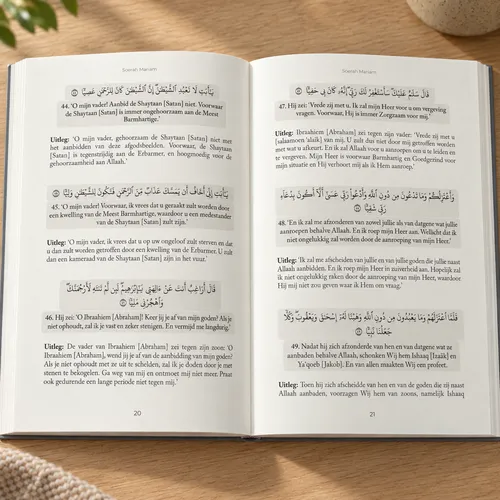 Soerah Mariam
يَـٰٓأَبَتِ لَا تَعْبُدِ ٱلشَّيْطَـٰنَ إِنَّ ٱلشَّيْطَـٰنَ كَانَ لِلرَّحْمَـٰنِ عَصِيًّا
44. 'O mijn vader! Aanbid de Shaytaan [Satan] niet. Voorwaar
de Shaytaan [Satan] is immer ongehoorzaam aan de Meest
Barmhartige.'
Uitleg: 'O mijn vader, gehoorzaam de Shaytaan [Satan] niet met
het aanbidden van deze afgodsbeelden. Voorwaar, de Shaytaan
[Satan] is tegenstrijdig aan de Erbarmer, en hoogmoedig voor de
gehoorzaamheid aan Allaah.'
يَـٰٓأَبَتِ إِنِّىٓ أَخَافُ أَن يَمَسَّكَ عَذَابٌ مِّنَ ٱلرَّحْمَـٰنِ فَتَكُونَ لِلشَّيْطَـٰنِ وَلِيًّا
45. 'O mijn vader! Voorwaar, ik vrees dat u geraakt zult worden door
een kwelling van de Meest Barmhartige, waardoor u een medestander
van de Shaytaan [Satan] zult zijn.'
Uitleg: 'O mijn vader, ik vrees dat u op uw ongeloof zult sterven en dat
u dan zult worden getroffen door een kwelling van de Erbarmer. U zult
dan een kameraad van de Shaytaan [Satan] zijn in het vuur.'
قَالَ أَرَاغِبٌ أَنتَ عَنْ ءَالِهَتِى يَـٰٓإِبْرَٰهِيمُ لَئِن لَّمْ تَنتَهِ لَأَرْجُمَنَّكَ
وَٱهْجُرْنِى مَلِيًّا
46. Hij zei: 'O Ibraahiem [Abraham]! Keer jij je af van mijn goden? Als je
niet ophoudt, zal ik je vast en zeker stenigen. En vermijd me langdurig.'
Uitleg: De vader van Ibraahiem [Abraham] zei tegen zijn zoon: 'O
Ibraahiem [Abraham], wend jij je af van de aanbidding van mijn goden?
Als je niet ophoudt met ze uit te schelden, zal ik je doden door je met
stenen te bekogelen. Ga weg van mij en ontmoet mij niet meer. Praat
ook gedurende een lange periode niet tegen mij.'
20
Soerah Mariam
قَالَ سَلَـٰمٌ عَلَيْكَ سَأَسْتَغْفِرُ لَكَ رَبِّىٓ إِنَّهُۥ كَانَ بِى حَفِيًّا
47. Hij zei: 'Vrede zij met u. Ik zal mijn Heer voor u om vergeving
vragen. Voorwaar, Hij is immer Zorgzaam voor mij.'
Uitleg: Ibraahiem [Abraham] zei tegen zijn vader: 'Vrede zij met u
[salaamoen 'alaik] van mij. U zult dus niet door mij getroffen worden
met wat u afkeurt. En ik zal Allaah voor u aanroepen om u te leiden en
te vergeven. Mijn Heer is voorwaar Barmhartig en Goedgezind voor
mijn situatie en Hij verhoort mij als ik Hem aanroep.'
وَأَعْتَزِلُكُمْ وَمَا تَدْعُونَ مِن دُونِ ٱللَّهِ وَأَدْعُوا۟ رَبِّى عَسَىٰٓ أَلَّآ أَكُونَ بِدُعَآءِ
رَبِّى شَقِيًّا
48. 'En ik zal me afzonderen van zowel jullie als van datgene wat jullie
aanroepen behalve Allaah. En ik roep mijn Heer aan. Wellicht dat ik
niet ongelukkig zal worden door de aanroeping van mijn Heer.'
Uitleg: 'Ik zal me afscheiden van jullie en van jullie goden die jullie naast
Allaah aanbidden. En ik roep mijn Heer in zuiverheid aan. Hopelijk zal
ik niet ongelukkig raken door de aanroeping van mijn Heer, waardoor
Hij mij niet zou geven waar ik Hem om vraag.'
فَلَمَّا ٱعْتَزَلَهُمْ وَمَا يَعْبُدُونَ مِن دُونِ ٱللَّهِ وَهَبْنَا لَهُۥٓ إِسْحَـٰقَ وَيَعْقُوبَ وَكُلًّا
جَعَلْنَا نَبِيًّا
49. Nadat hij zich afzonderde van hen en van datgene wat ze
aanbaden behalve Allaah, schonken Wij hem Ishaaq [Izaäk] en
Ya'qoeb [Jakob]. En van allen maakten Wij een profeet.
Uitleg: Toen hij zich afscheidde van hen en van de goden die zij naast
Allaah aanbaden, voorzagen Wij hem van zoons, namelijk Ishaaq
21